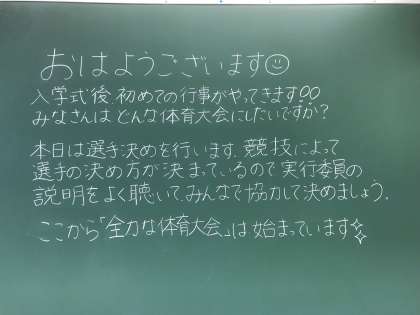 おはようございます☺
入学式後、初めての行事がやってきます!!
みなさんは どんな体育大会にしたいですか?
本日は選手決めを行います。競技によって
選手の決め方が決まっているので実行委員の
説明をよく聴いて、みんなで協力して決めましょう。
ここから「全力な体育大会」は始まっています✨